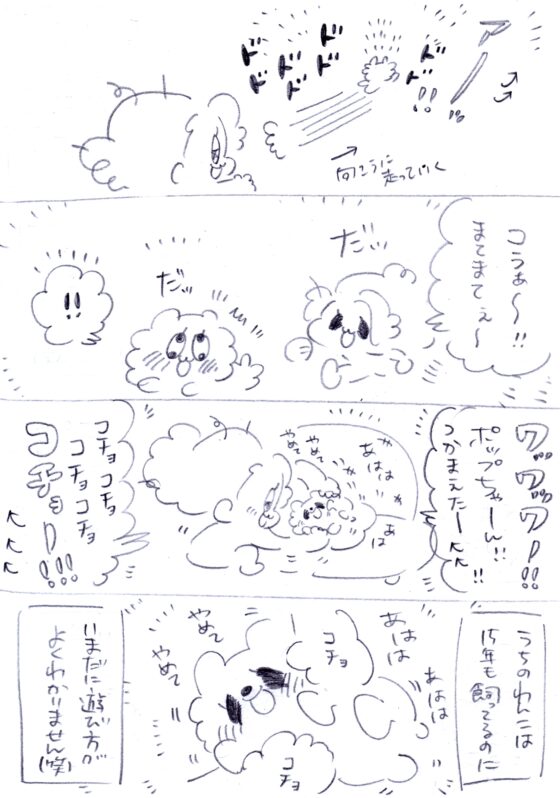 アー!!
ドド
ドド
ドド
ドド
向こうに
走っていく
コラぁ〜!!
まてまてぇ〜
だッ
だッ
!!
ワッワッワー!!
ポップちゃーん!!
つかまえたー!!
あはは
あは
やめて
やめて
コチョコチョ
コチョコチョ
コチョー!!!
うちのわんこは
15年も飼ってるのに
あははは
あははは
コチョ
コチョ
やめて
やめて
いまだに遊び方が
よくわかりません(笑)